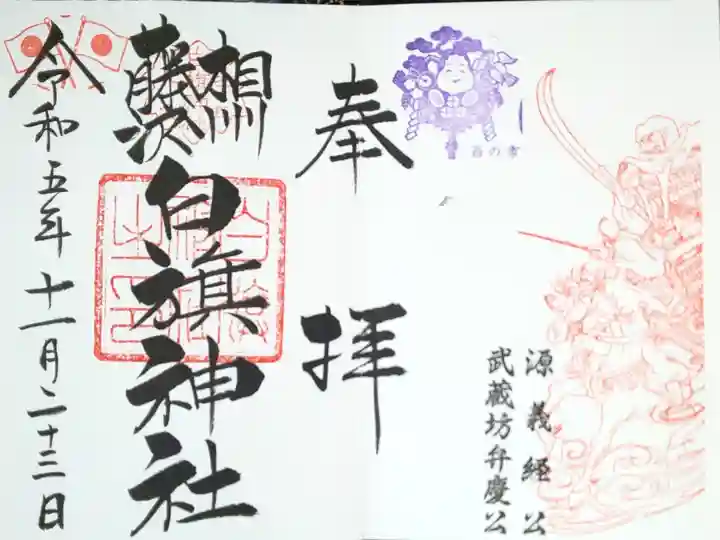 源義經公
武蔵坊弁慶公
酉の市
奉拝
相州
藤沢
白旗神社
令和五年十一月二十三日